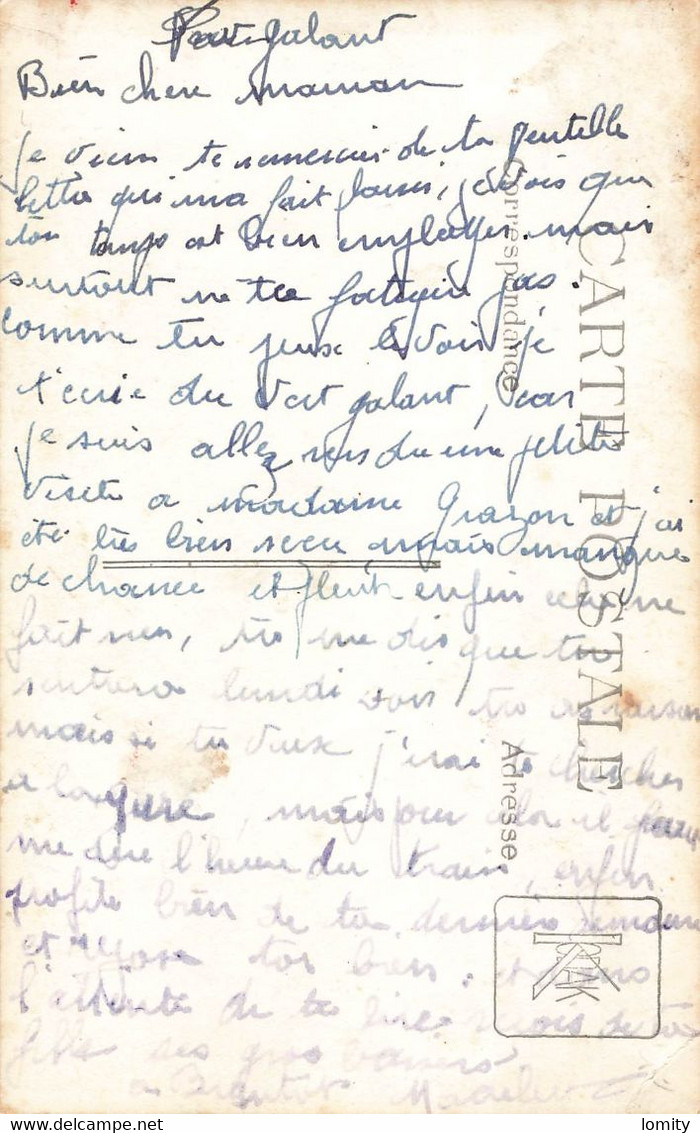 Vert galant
Bien chere maman
je viens te remercier de ta gentille
lettre qui ma fait plaisir, je vois que
ton temps est bien employer. mais
surtout ne te fatigue pas.
comme tu peux le voir je
t'ecrie du Vert galant, car
je suis allez rendu une petite
visite a madame Grazon et j'ai
été très bien recu, mais manque
de chance il pleut enfin cela ne
fait rien, tu me dis que tu
rentrera lundi soir tu a raison
mais si tu veux j'irai te chercher
a la gare, mais pour cela il faut
me dire l'heure du train, enfin
profite bien de ta derniere semaine
et repose toi bien. et dans
l'attente de te lire recois de ta
fille des gros baisers
a Bientot Madeleine
CARTE POSTALE
Correspondance
Adresse